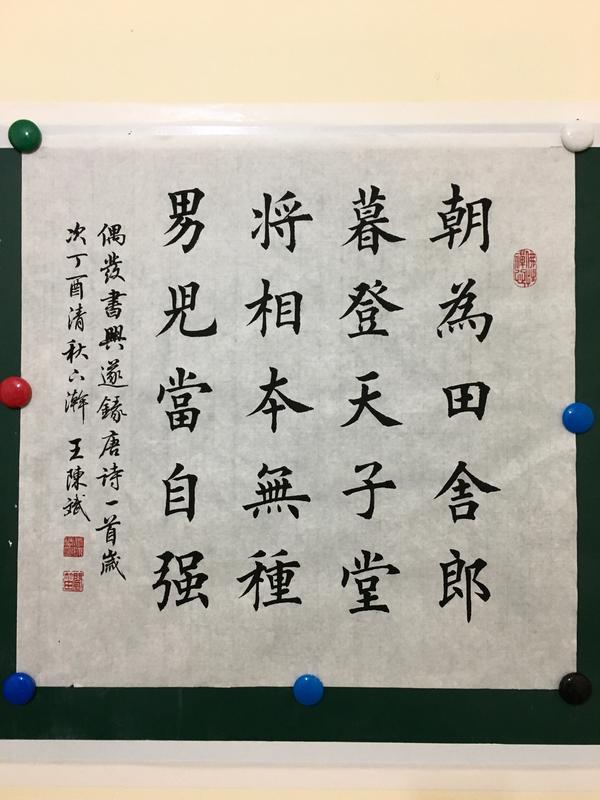 朝為田舍郎
暮登天子堂
将相本無種
男児當自强
偶發書興遂録唐詩一首歲
次丁酉清秋六瀚 王陳斌